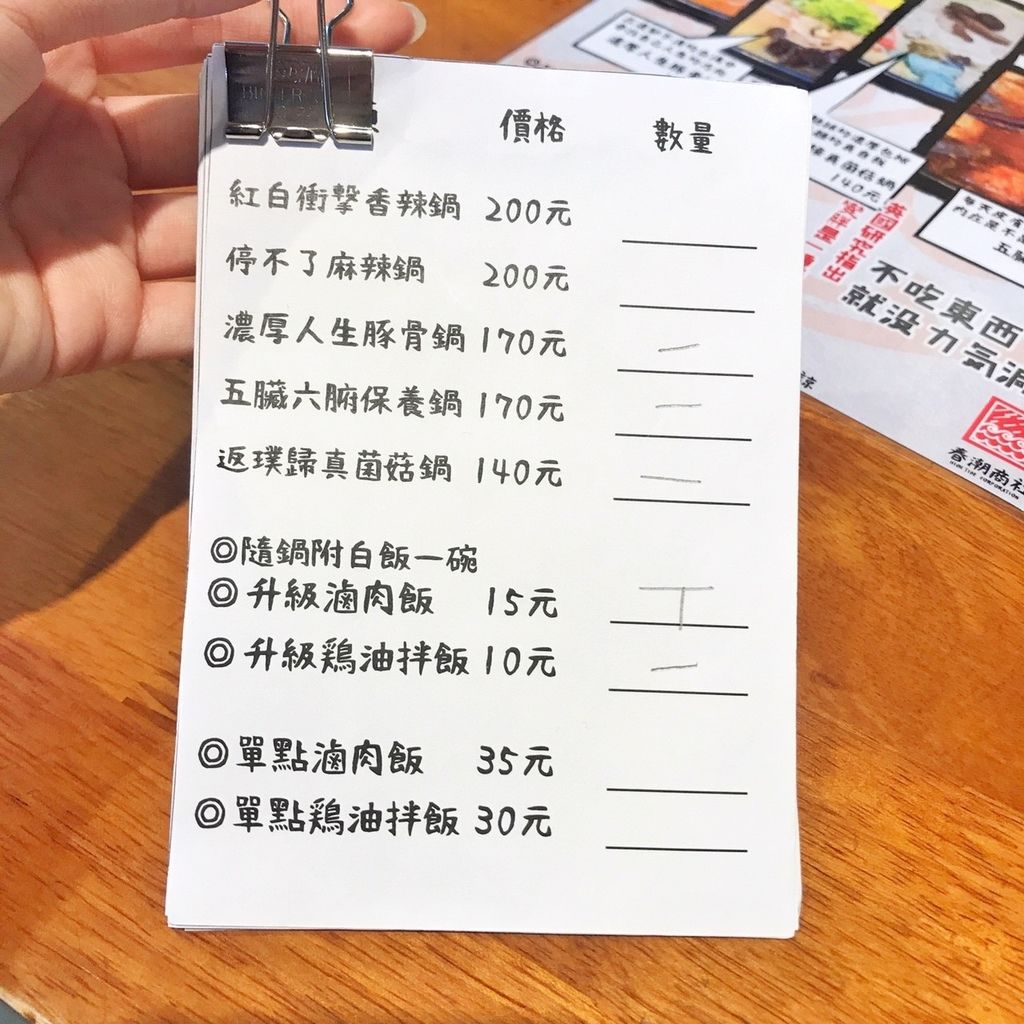 價格 數量
紅白衝擊香辣鍋 200元
停不了麻辣鍋 200元
濃厚人生豚骨鍋 170元 一
五臟六腑保養鍋 170元 一
返璞歸真菌菇鍋 140元 一
◎隨鍋附白飯一碗
◎升級滷肉飯 15元 丅
◎升級鶏油拌飯 10元 一
◎單點滷肉飯 35元
◎單點鶏油拌飯 30元
真菌菇鍋
140元
英國研究指出
不吃東西
就没力氣減
春潮商社
HIGH TIDE CORPORATION